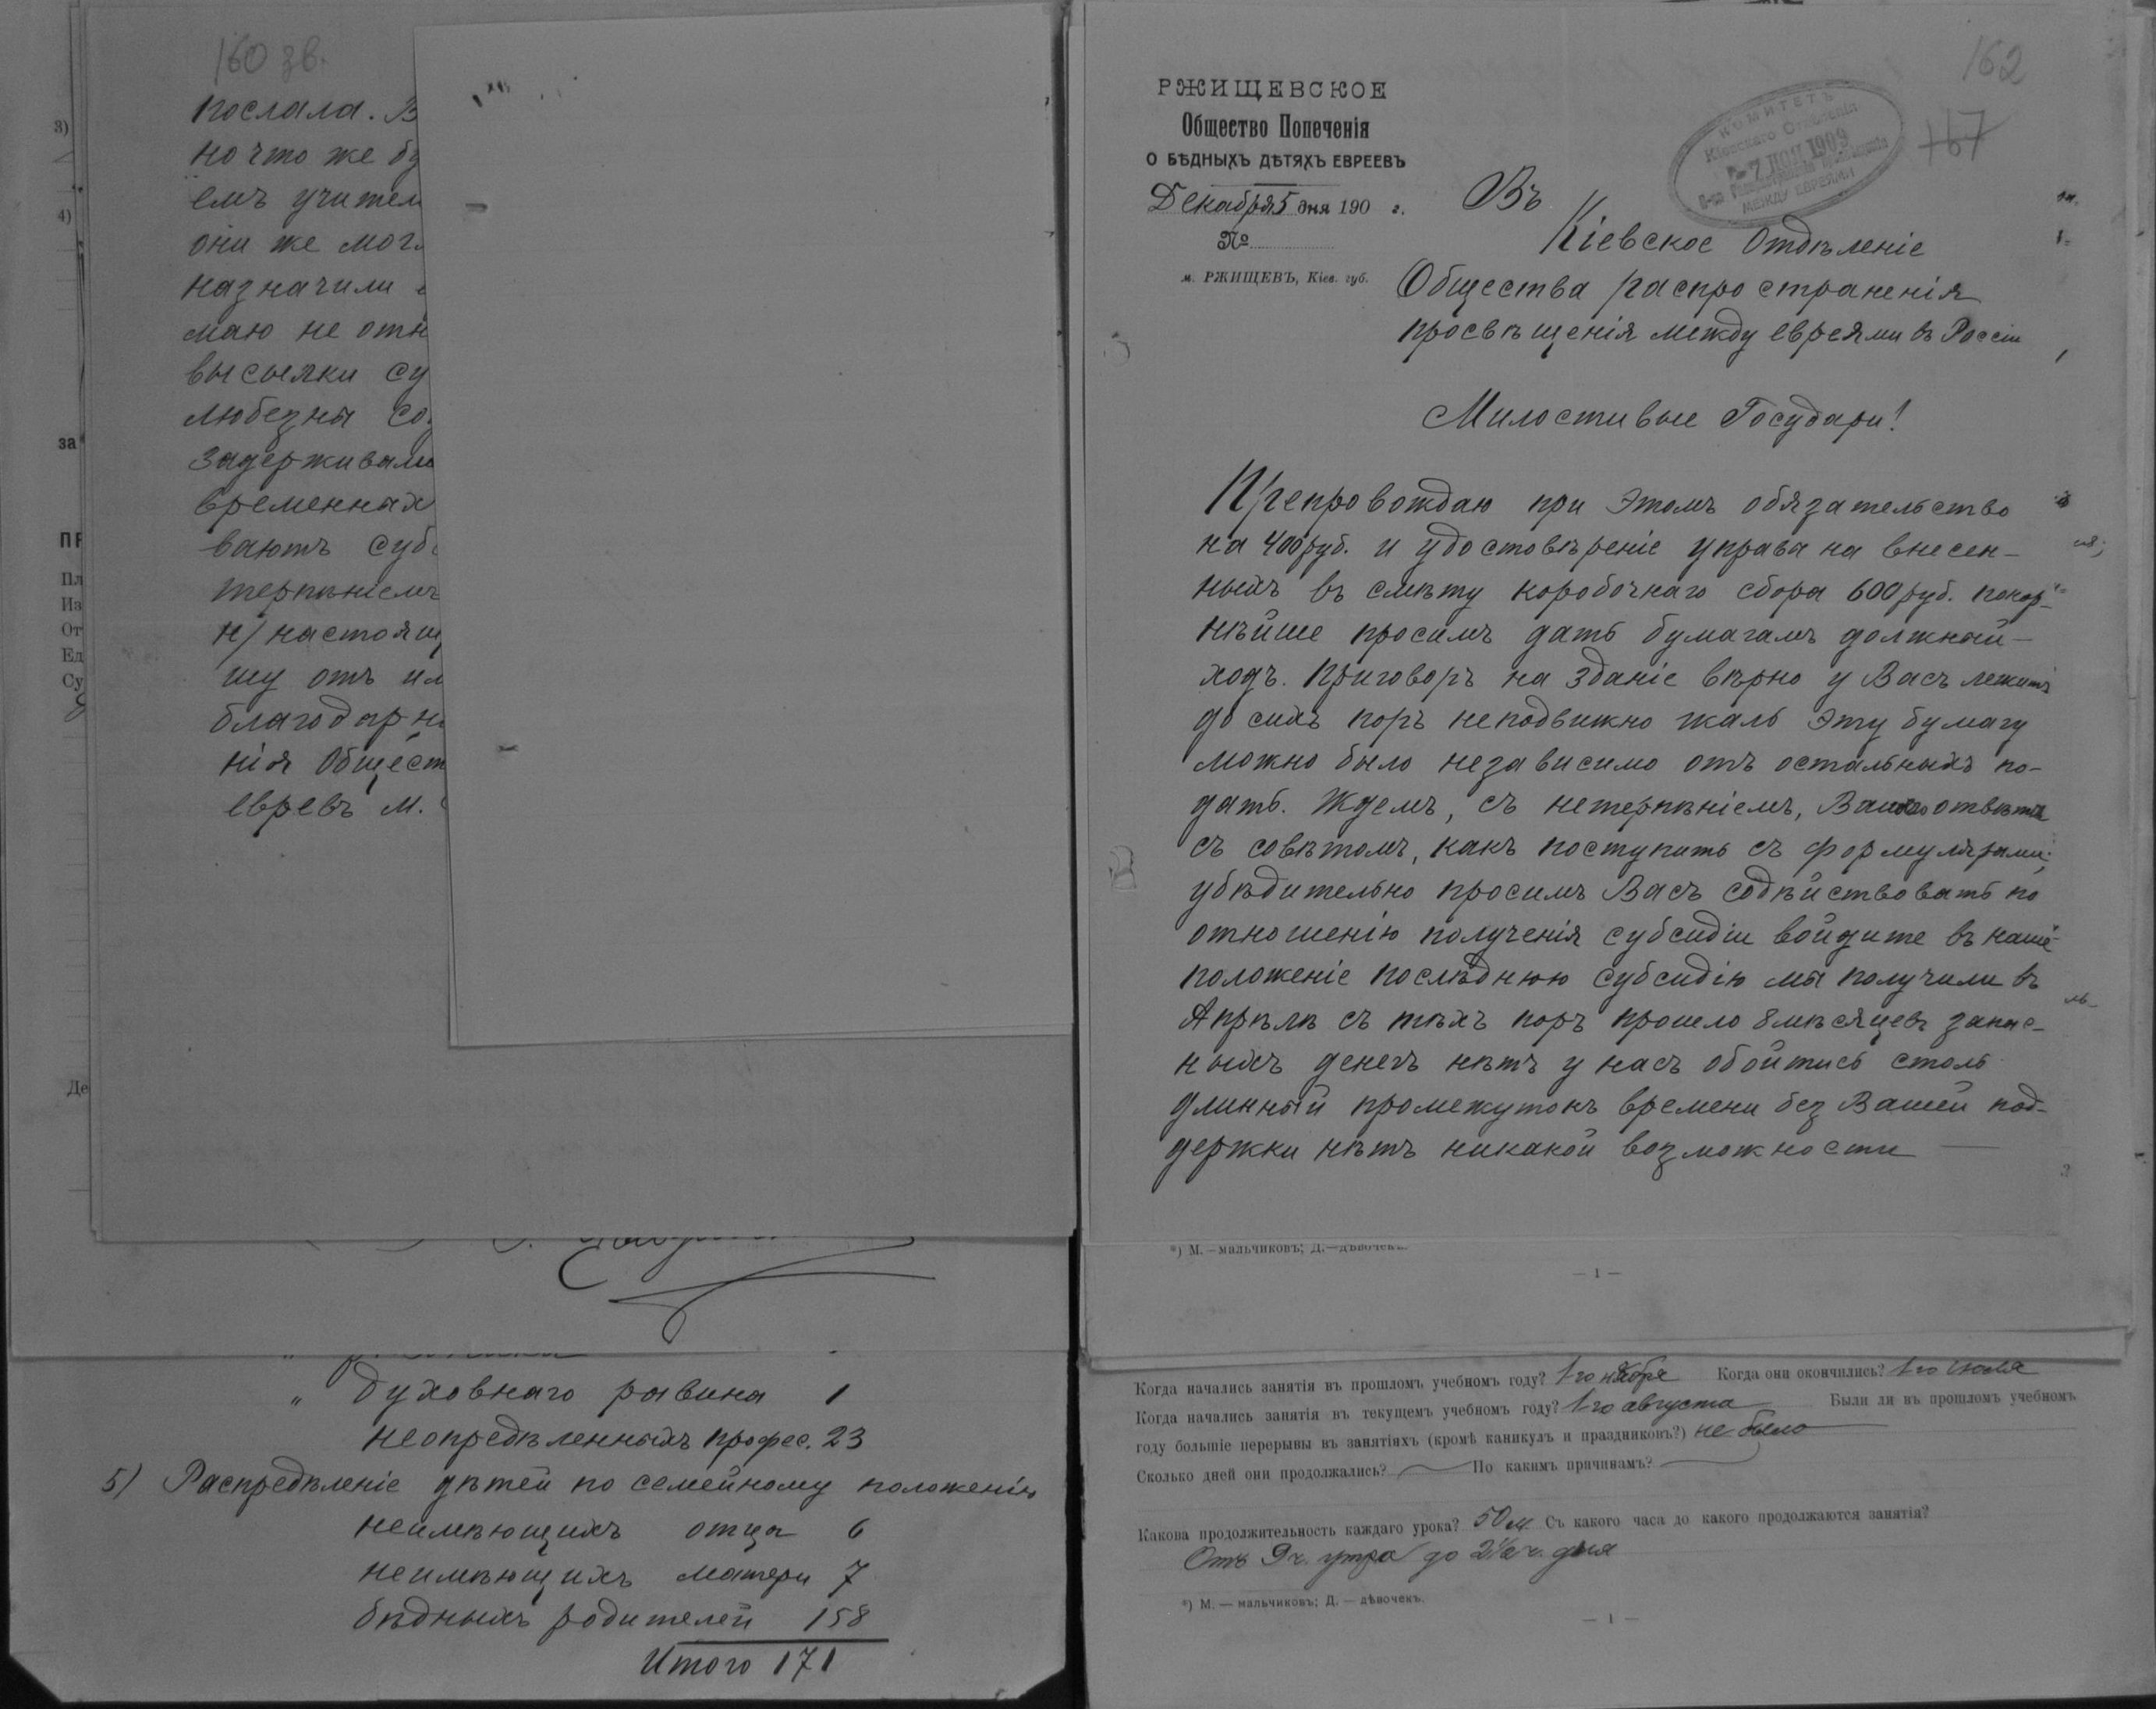 160 зв.
послала. В
но что же бу
емъ учител
они же мог
назначили
маю не отн
высылки су
любезны со
задерживали
временных
ваютъ суб
терпѣніемъ
н) настоящ
шу отъ им
благодарн
нія Общест
евревъ м.
" Духовнаго равина 1
неопредѣленныхъ профес. 23
5) Распредѣленіе дѣтей по семейному положенію
неимѣющихъ отца 6
неимѣющихъ матери 7
бѣдныхъ родителей 158
Итого 171
3)
4)
за
ПР
Пл
Из
От
Ед
Су
Де
162
167
РЖИЩЕВСКОЕ
Общество Попеченія
О БѢДНЫХЪ ДѢТЯХЪ ЕВРЕЕВЪ
Декабря 5 дня 190 г.
№
м. РЖИЩЕВЪ, Кіев. губ.
КОМИТЕТЪ
Кіевскаго Отдѣленія
7 ДЕК 1909
О-ва Распространенія Просвѣщенія
МЕЖДУ ЕВРЕЯМИ
Въ
Кіевское Отдѣленіе
Общества распространенія
просвѣщенія между евреями въ Россіи
Милостивые Государи!
Препровождаю при этомъ обязательство
на 400 руб. и удостовѣреніе управы на внесен-
ныхъ въ смѣту коробочнаго сбора 600 руб. покор-
нѣйше просимъ дать бумагамъ должный-
ходъ. Приговоръ на зданіе вѣрно у Васъ лежитъ
до сихъ поръ неподвижно жаль эту бумагу
можно было независимо отъ остальныхъ по-
дать. Ждемъ, съ нетерпѣніемъ, Вашего отвѣта
съ совѣтомъ, какъ поступить съ формулярами;
убѣдительно просимъ Васъ содѣйствовать по
отношенію полученія субсидіи войдите въ наше
положеніе послѣднюю субсидію мы получили въ
Апрѣлѣ съ тѣхъ поръ прошло 8 мѣсяцевъ запас-
ныхъ денегъ нѣтъ у насъ обойтись столь
длинный промежутокъ времени без Вашей под-
держки нѣтъ никакой возможности —
*) М. — мальчиковъ; Д. — дѣвочекъ.
— 1 —
Когда начались занятія въ прошломъ учебномъ году? 1го Когда они окончились? 1го
Когда начались занятія въ текущемъ учебномъ году? 1го августа Были ли въ прошломъ учебномъ
году большіе перерывы въ занятіяхъ (кромѣ каникулъ и праздниковъ?) не было
Сколько дней они продолжались? — По какимъ причинамъ? —
Какова продолжительность каждаго урока? 50 м. Съ какого часа до какого продолжаются занятія?
Отъ 9 ч. утра до 2½ ч. дня
*) М. — мальчиковъ; Д. — дѣвочекъ.
— 1 —